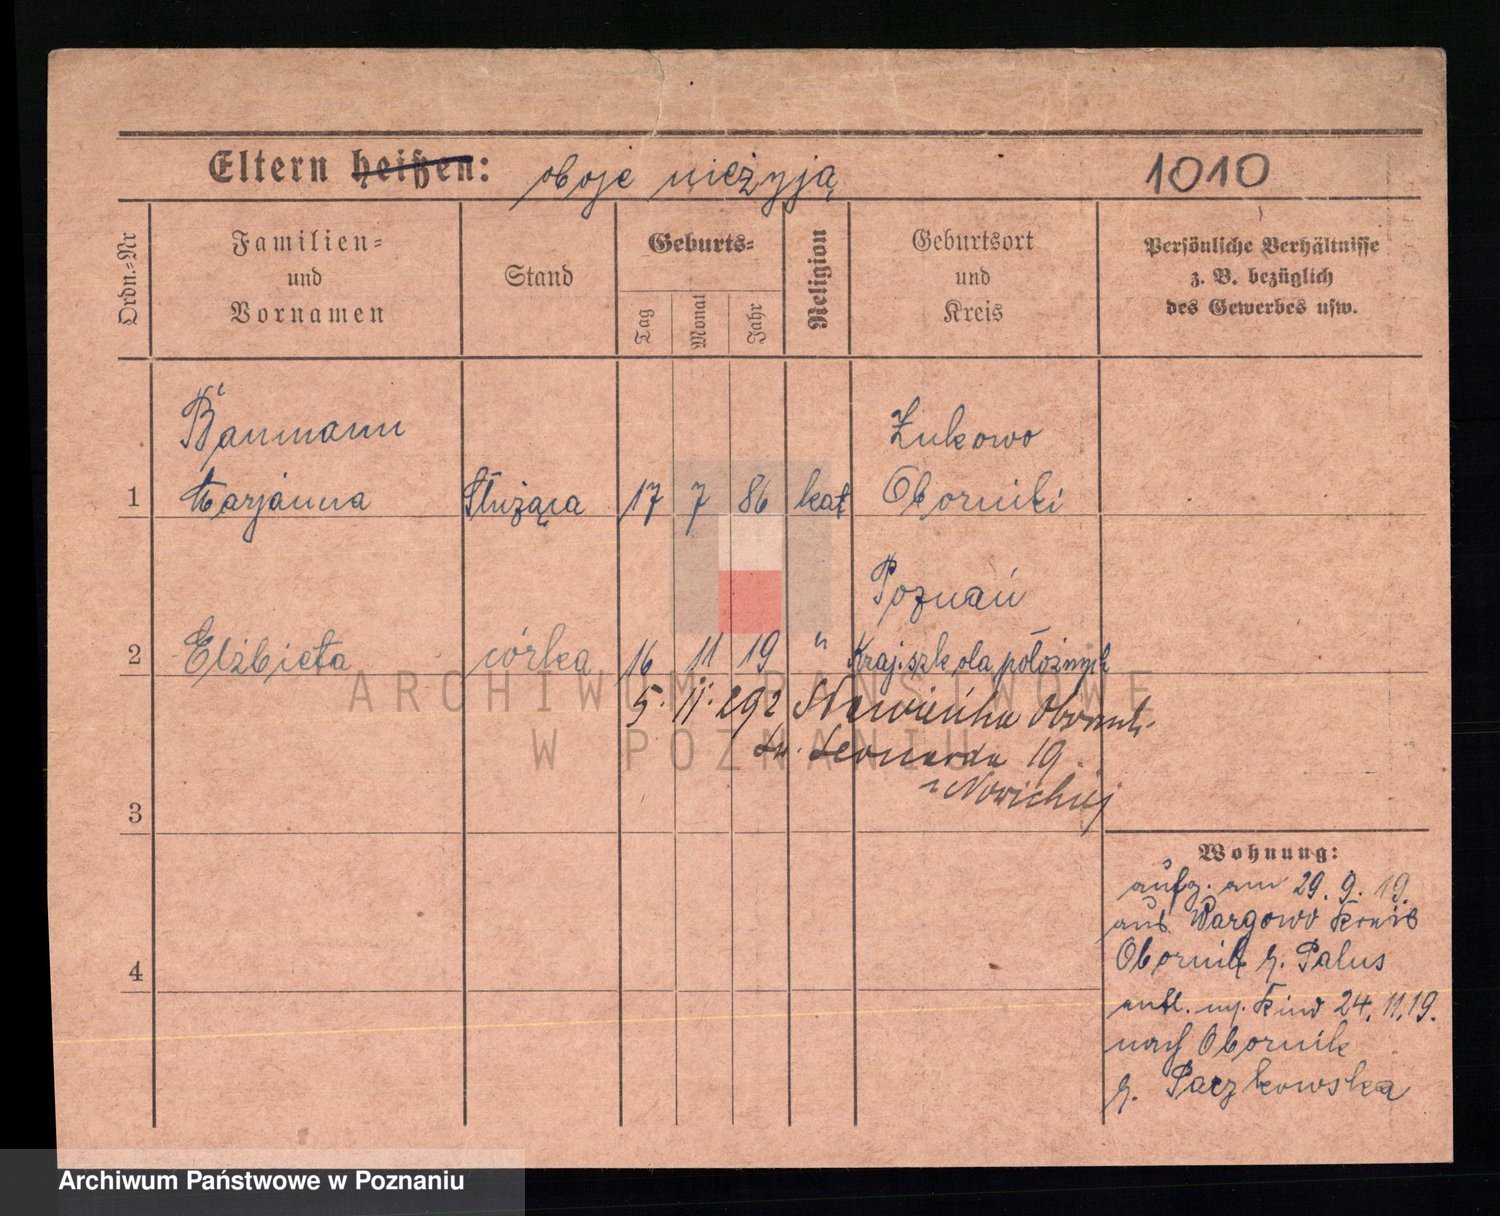 Eltern heißen: oboje nieżyją
1010
Ordn.-Nr
Familien-
und
Vornamen
Stand
Geburts-
Tag
Monat
Jahr
Religion
Geburtsort
und
Kreis
Persönliche Verhältnisse
z. B. bezüglich
des Gewerbes usw.
Baumann
Żukowo
1 Marjanna Służąca 17 7 86 kat Oborniki
Poznań
2 Elżbieta córka 16 11 19 " Kraj. szkola położnych
5. 11. 292 Oborniki
Św. Leonarda 19
3
4
Wohnung:
aufg. am 29. 9. 19.
aus Wargowo Kreis
Obornik b. Palus
entl. m. Kind 24. 11. 19.
nach Obornik
b. Paczkowska
ARCHIWUM PAŃSTWOWE
W POZNANIU
Archiwum Państwowe w Poznaniu